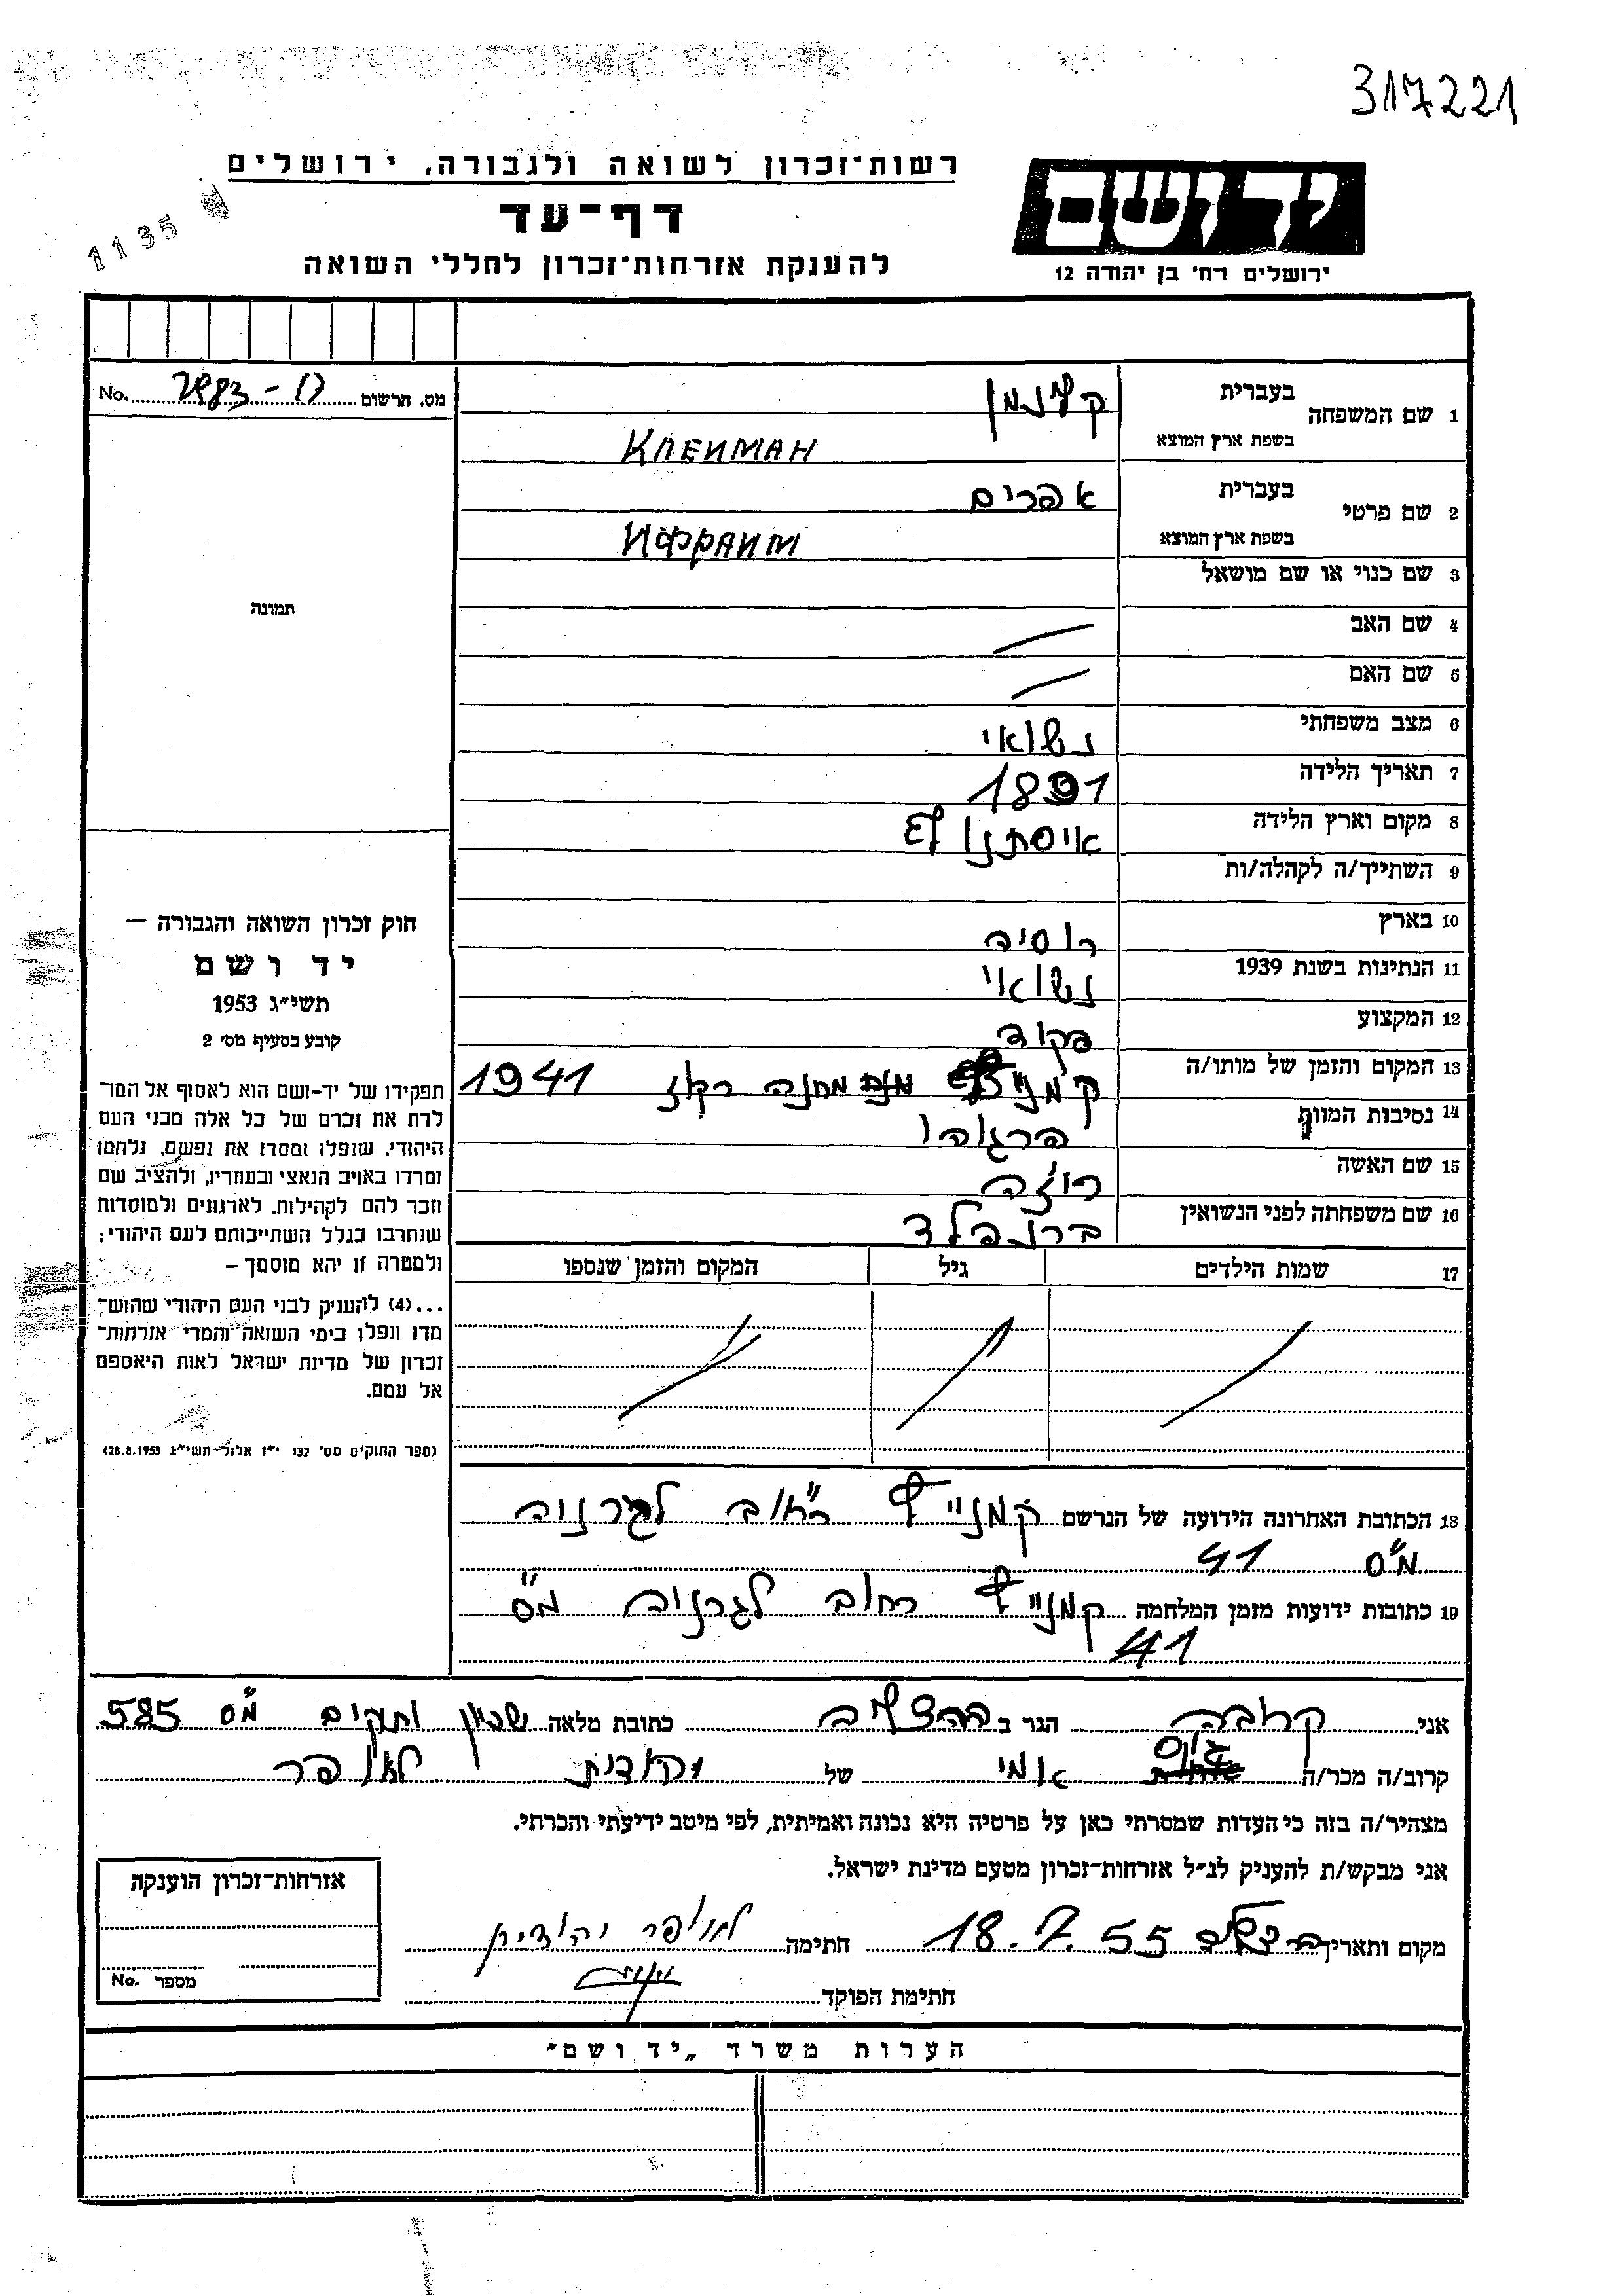 317221
רשות־זכרון לשואה ולגבורה, ירושלים
יד ושם
1135
דף־עד
להענקת אזרחות־זכרון לחללי השואה
ירושלים רח' בן יהודה 12
מס. הרשום No.
1 שם המשפחה בעברית קליינמן
בשפת ארץ המוצא КЛЕЙМАН
2 שם פרטי בעברית אפרים
בשפת ארץ המוצא ИФРАИМ
3 שם כנוי או שם מושאל
תמונה
4 שם האב
5 שם האם
6 מצב משפחתי נשואי
7 תאריך הלידה 1891
8 מקום וארץ הלידה
9 השתייך/ה לקהלה/ות
10 בארץ רוסיה
11 הנתינות בשנת 1939 נשואי
12 המקצוע פקיד
13 המקום והזמן של מותו/ה מחנה רכוז 1941
14 נסיבות המוות הרגוהו
15 שם האשה רוזה
16 שם משפחתה לפני הנשואין
חוק זכרון השואה והגבורה —
יד ושם
תשי״ג 1953
קובע בסעיף מס' 2
תפקידו של יד-ושם הוא לאסוף אל המו־
לדת את זכרם של כל אלה מבני העם
היהודי, שנפלו ומסרו את נפשם, נלחמו
ומרדו באויב הנאצי ובעוזריו, ולהציב שם
וזכר להם לקהילות, לארגונים ולמוסדות
שנחרבו בגלל השתייכותם לעם היהודי;
ולמטרה זו יהא מוסמך —
...(4) להעניק לבני העם היהודי שהוש־
מדו ונפלו בימי השואה והמרי אזרחות־
זכרון של מדינת ישראל לאות היאספם
אל עמם.
(ספר החוקים מס' 132 י״ז אלול־תשי״ג 28.8.1953)
17 שמות הילדים גיל המקום והזמן שנספו
18 הכתובת האחרונה הידועה של הנרשם
מ״ס 41
19 כתובות ידועות מזמן המלחמה רחוב מ״ס
41
אני קרובה הגר ב הרצליה כתובת מלאה שכון ותיקים מ״ס 585
קרוב/ה מכר/ה של
מצהיר/ה בזה כי העדות שמסרתי כאן על פרטיה היא נכונה ואמיתית, לפי מיטב ידיעתי והכרתי.
אני מבקש/ת להעניק לנ״ל אזרחות־זכרון מטעם מדינת ישראל.
מקום ותאריך הרצליה 18.7.55 חתימה יהודית
חתימת הפוקד
אזרחות־זכרון הוענקה
מספר No.
הערות משרד „יד ושם״